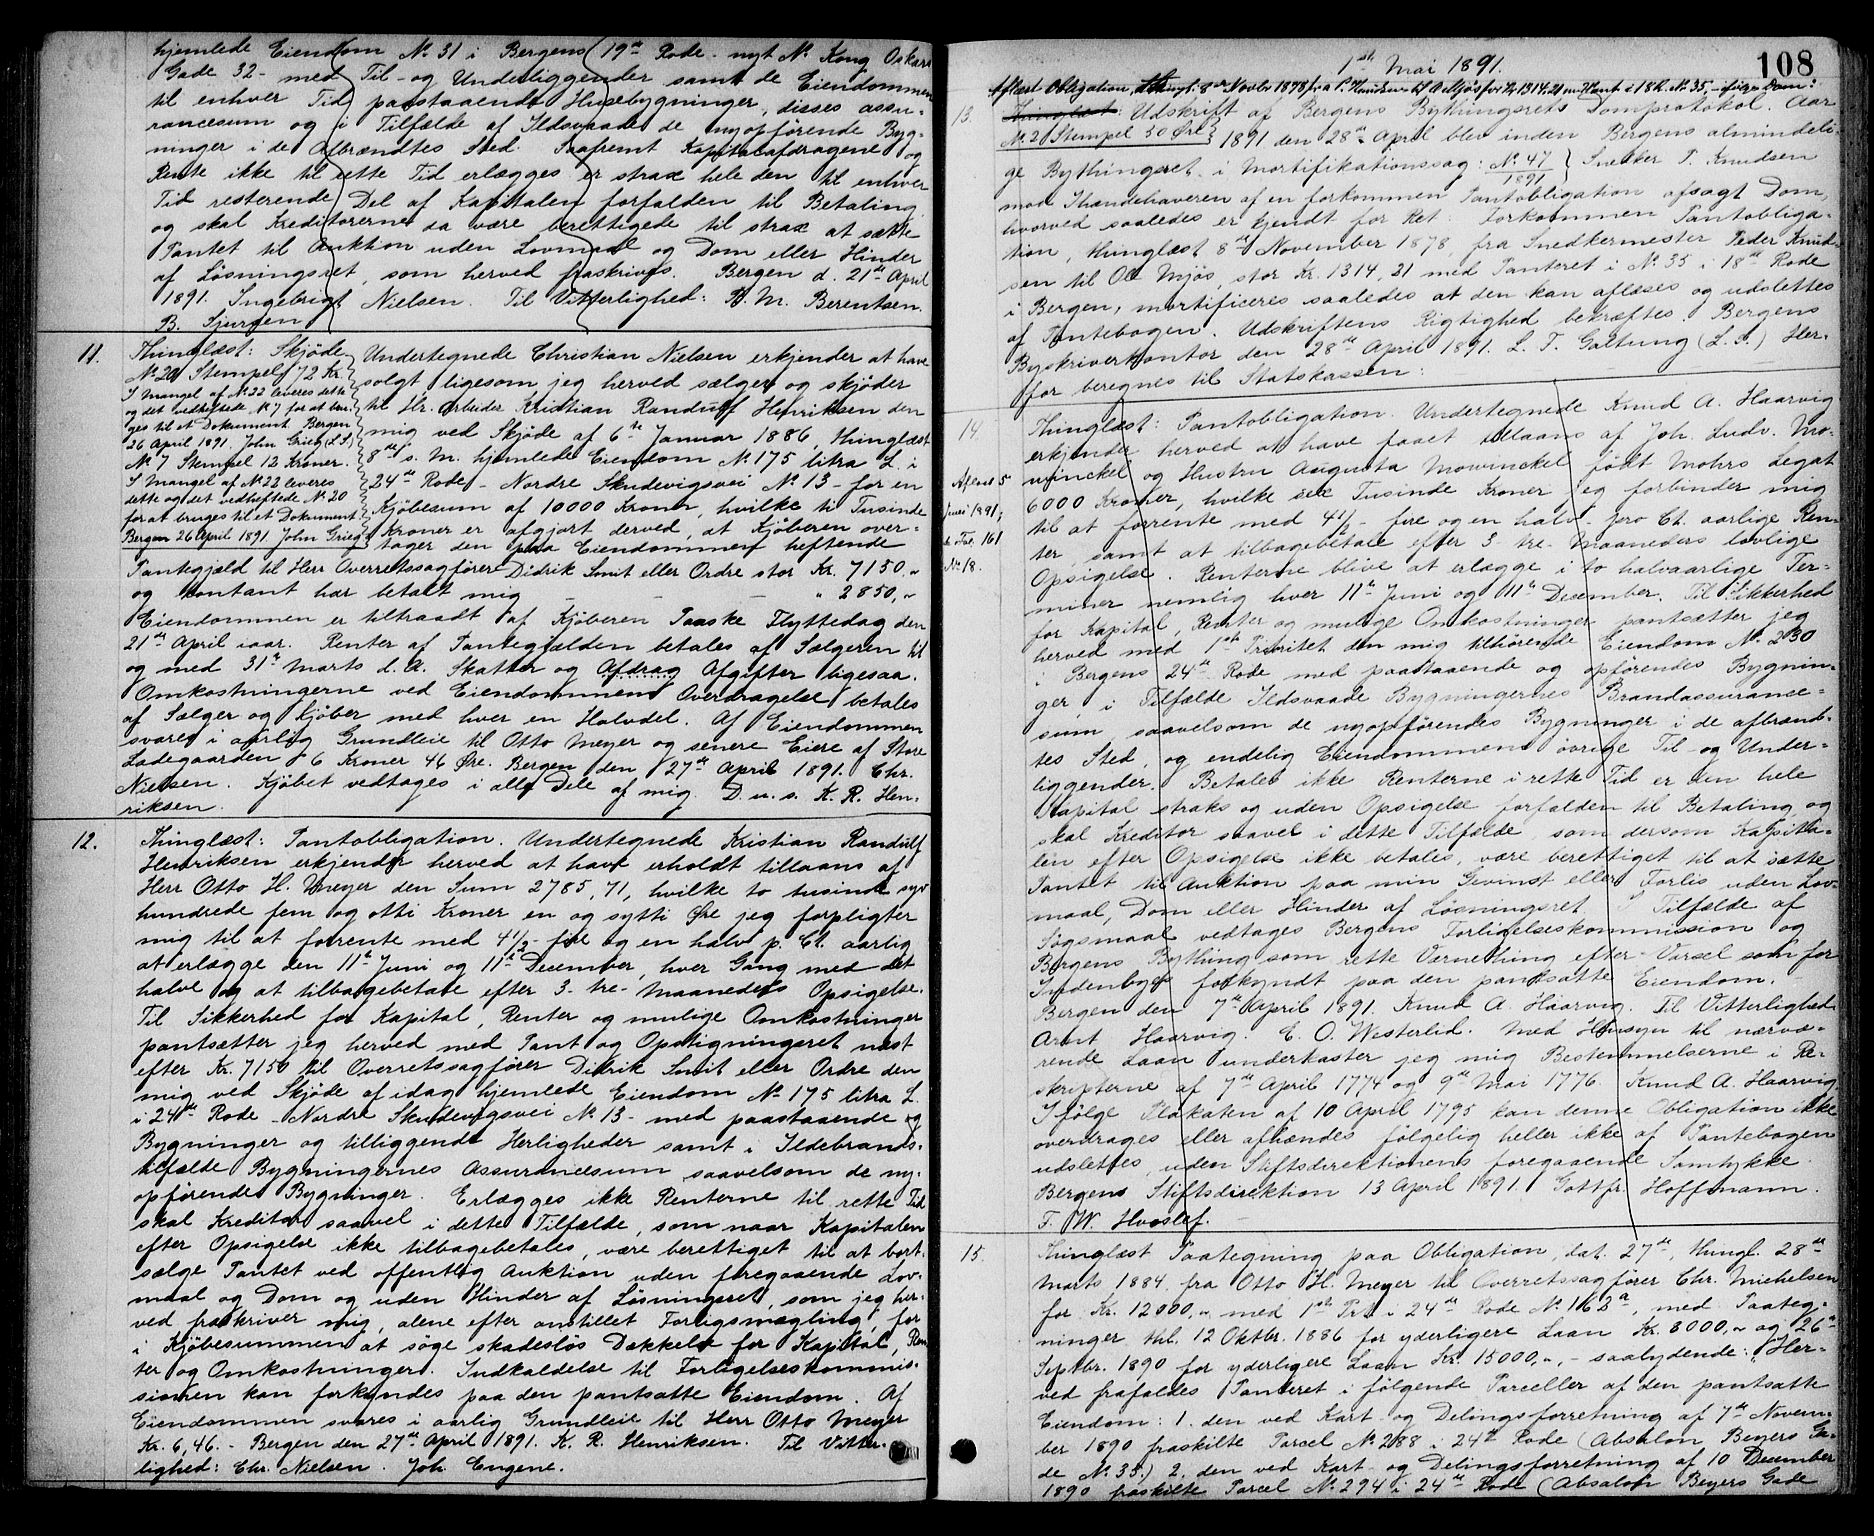 hjemlede Eiendom No 31 i Bergens 19de Rode - nyt No Kong Oskars
Gade 32 - med Til- og Underliggender samt de Eiendommen
til enhver Tid paastaaende Husebygninger, disses assu-
rancesum og i Tilfælde af Ildsvaade de nyopførende Byg-
ninger i de Afbrændtes Sted. Saafremt Kapitalafdragene og
Rente ikke til rette Tid erlægges er strax hele den til enhver
Tid resterende Del af Kapitalen forfalden til Betaling
og skal Kreditorerne da være berettigede til strax at sætte
Pantet til Auktion uden Lovmaal og Dom eller Hinder
af Løsningsret, som herved fraskrives. Bergen d. 21de April
1891. Ingebrigt Nielsen. Til Vitterlighed: B. M. Berentsen.
B. Sjursen
11. Thinglæst: Skjøde
No 20 Stempel 72 Kr.
I Mangel af No 22 leveres dette
og det vedheftede No 7 for at bru-
ges til et Dokument Bergen
26 April 1891. John Grieg (L.S.)
No 7 Stempel 12 Kroner.
I Mangel af No 22 leveres
dette og det vedheftede No 20
for at bruges til et Dokument
Bergen 26 April 1891. John Grieg
Undertegnede Christian Nielsen erkjender at have
solgt ligesom jeg herved sælger og skjøder
til Hr. Arbeider Kristian Randulf Henriksen den
mig ved Skjøde af 6te Januar 1886, thinglæst
8de s. M. hjemlede Eiendom No 175 litra L. i
24de Rode - Nordre Skudevigsvei No 13 - for en
Kjøbesum af 10000 Kroner, hvilke ti Tusinde
Kroner er afgjort derved, at Kjøberen over-
tager den paa Eiendommen heftende
Pantegjæld til Herr Overretssagfører Didrik Smit eller Ordre stor Kr. 7150.„
og kontant har betalt mig - - - „ 2850,„
Eiendommen er tiltraadt af Kjøberen Paaske Flyttedag den
21de April iaar. Renter af Pantegjælden betales af Sælgeren til
og med 31te Marts d. A. Skatter og Afdrag Afgifter ligesaa.
Omkostningerne ved Eiendommens Overdragelse betales
af Sælger og Kjøber med hver en Halvdel. Af Eiendommen
svares i aarlig Grundleie til Otto Meyer og senere Eiere af Store
Ladegaarden 6 Kroner 46 Øre. Bergen den 27de April 1891. Chr.
Nielsen. Kjøbet vedtages i alle Dele af mig. D. u. s. K. R. Hen-
riksen.
12. Thinglæst: Pantobligation. Undertegnede Kristian Randulf
Henriksen erkjender herved at have erholdt tillaans af
Herr Otto H. Meyer den Sum 2785,71, hvilke to tusinde syv
hundrede fem og otti Kroner en og sytti Øre jeg forpligter
mig til at forrente med 4 1/2 - fire og en halv p. Ct. aarlig
at erlægge den 11te Juni og 11te December, hver Gang med det
halve og at tilbagebetale efter 3 - tre - Maaneders Opsigelse.
Til Sikkerhed for Kapital, Renter og mulige Omkostninger
pantsætter jeg herved med Pant og Opstigningsret næst
efter Kr. 7150 til Overretssagfører Didrik Smit eller Ordre den
mig ved Skjøde af idag hjemlede Eiendom No 175 litra L.
i 24de Rode - Nordre Skudevigsvei No 13 - med paastaaende og
Bygninger og tilliggende Herligheder samt i Ildebrands-
tilfælde Bygningernes Assurancesum saavelsom de ny-
opførende Bygninger. Erlægges ikke Renterne til rette Tid
skal Kreditor saavel i dette Tilfælde, som naar Kapitalen
efter Opsigelse ikke tilbagebetales, være berettiget til at bort-
sælge Pantet ved offentlig Auktion uden foregaaende Lov-
maal og Dom og uden Hinder af Løsningsret, som jeg her-
ved fraskriver mig, alene efter anstillet Forligsmægling, for
i Kjøbesummen at søge skadesløs Dækkelse for Kapital, Ren-
ter og Omkostninger. Indkaldelse til Forligelseskommis-
sionen kan forkyndes paa den pantsatte Eiendom. Af
Eiendommen svares i aarlig Grundleie til Herr Otto Meyer
Kr. 6,46. - Bergen den 27de April 1891. K. R. Henriksen. Til Vitter-
lighed: Chr. Nielsen. Joh. Engene.
1ste Mai 1891. 108
Aflæst Obligation, thingl. 8de Novbr 1878 fra P. Knudsen til O. Mjøs for Kr 1314.21 m. Pant i 18 R. No 35, - ifølge Dom:
13. Thinglæst: Udskrift af Bergens Bythingsrets Domprotokol. Aar
No 20 Stempel 50 Øre 1891 den 28de April blev inden Bergens almindeli-
ge Bythingsret i Mortifikationssag: No 47/1891 Snedker P. Knudsen
mod Ihændehaveren af en forkommen Pantobligation afsagt Dom,
hvorved saaledes er kjendt for Ret: Forkommen Pantobliga-
tion, thinglæst 8de November 1878, fra Snedkermester Peder Knud-
sen til Ole Mjøs, stor Kr. 1314,21 med Panteret i No 35 i 18de Rode
i Bergen, mortificeres saaledes at den kan aflæses og udslettes
af Pantebogen. Udskriftens Rigtighed bekræftes. Bergens
Byskriverkontor den 28de April 1891. L. T. Galtung (L. S.) Her-
for beregnes til Statskassen:
14. Thinglæst: Pantobligation. Undertegnede Knud A. Haarvig
erkjender herved at have faaet tillaans af Joh. Ludv. Mo-
winckel og Hustru Augusta Mowinckel født Mohrs Legat
6000 Kroner, hvilke sex Tusinde Kroner jeg forbinder mig
til at forrente med 4 1/2 - fire og en halv - pro Ct. aarlige Ren-
ter, samt at tilbagebetale efter 3 - tre - Maaneders lovlige
Opsigelse. Renterne blive at erlægge i to halvaarlige Ter-
miner nemlig hver 11te Juni og 11te December. Til Sikkerhed
for Kapital, Renter og mulige Omkostninger pantsætter jeg
herved med 1ste Prioritet den mig tilhørende Eiendom No 230
i Bergens 24de Rode med paastaaende og opførendes Bygnin-
ger, i Tilfælde Ildsvaade Bygningernes Brandassurance-
sum, saavelsom de nyopførendes Bygninger i de afbrænd-
tes Sted, og endelig Eiendommens øvrige Til- og Under-
liggender. Betales ikke Renterne i rette Tid er den hele
Kapital straks og uden Opsigelse forfalden til Betaling og
skal Kreditor saavel i dette Tilfælde som dersom Kapita-
len efter Opsigelse ikke betales, være berettiget til at sætte
Pantet til Auktion paa min Gevinst eller Forlis uden Lov-
maal, Dom eller Hinder af Løsningsret. I Tilfælde af
Søgsmaal vedtages Bergens Forligelseskommission og
Bergens Bything som rette Vernething efter Varsel som for
Indenbys forkyndt paa den pantsatte Eiendom.
Bergen den 7de April 1891. Knud A. Haarvig. Til Vitterlighed
Arnt Haarvig. E. O. Westerlid. Med Hensyn til nærvæ-
rende Laan underkaster jeg mig Bestemmelserne i Re-
skripterne af 7de April 1774 og 9de Mai 1776. Knud A. Haarvig
Ifølge Plakaten af 10 April 1795 kan denne Obligation ikke
overdrages eller afhændes følgelig heller ikke af Pantebogen
udslettes, uden Stiftsdirektionens foregaaende Samtykke.
Bergens Stiftsdirektion 13 April 1891. Gottfr. Hoffmann.
F. W. Hvoslef.
Aflæst 5
Juni 1891,
Fol. 161
No 18.
15. Thinglæst Paategning paa Obligation, dat. 27de, thingl. 28de
Marts 1884 fra Otto H. Meyer til Overretssagfører Chr. Michelsen
for Kr. 12000,„ med 1ste Pr. i 24de Rode No 163a, med Paateg-
ninger thl. 12 Oktbr. 1886 for yderligere Laan Kr. 8000,„ og 26de
Septbr. 1890 for yderligere Laan Kr. 15000,„, - saalydende: „Her-
ved frafaldes Panteret i følgende Parceller af den pantsatte
Eiendom: 1. den ved Kart- og Delingsforretning af 7de Novem-
ber 1890 fraskilte Parcel No 288 i 24de Rode (Absalon Beyers Ga-
de No 35.) 2. den ved Kart- og Delingsforretning af 10 December
1890 fraskilte Parcel No 294 i 24de Rode (Absalon Beyers Gade